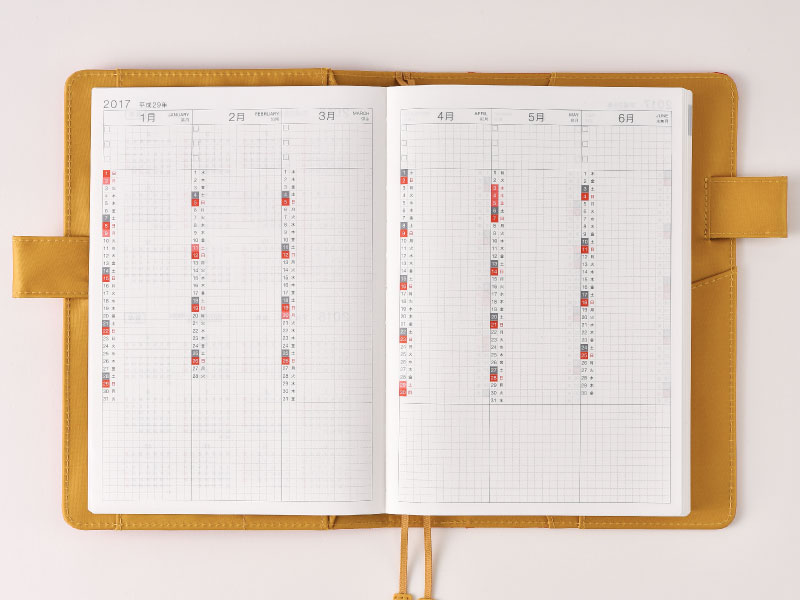 2017 平成29年
1月 JANUARY 睦月 2月 FEBRUARY 如月 3月 MARCH 弥生
1 日 1 水 1 水
2 月 2 木 2 木
3 火 3 金 3 金
4 水 4 土 4 土
5 木 5 日 5 日
6 金 6 月 6 月
7 土 7 火 7 火
8 日 8 水 8 水
9 月 9 木 9 木
10 火 10 金 10 金
11 水 11 土 11 土
12 木 12 日 12 日
13 金 13 月 13 月
14 土 14 火 14 火
15 日 15 水 15 水
16 月 16 木 16 木
17 火 17 金 17 金
18 水 18 土 18 土
19 木 19 日 19 日
20 金 20 月 20 月
21 土 21 火 21 火
22 日 22 水 22 水
23 月 23 木 23 木
24 火 24 金 24 金
25 水 25 土 25 土
26 木 26 日 26 日
27 金 27 月 27 月
28 土 28 火 28 火
29 日 29 水
30 月 30 木
31 火 31 金
4月 APRIL 卯月 5月 MAY 皐月 6月 JUNE 水無月
1 土 1 月 1 木
2 日 2 火 2 金
3 月 3 水 3 土
4 火 4 木 4 日
5 水 5 金 5 月
6 木 6 土 6 火
7 金 7 日 7 水
8 土 8 月 8 木
9 日 9 火 9 金
10 月 10 水 10 土
11 火 11 木 11 日
12 水 12 金 12 月
13 木 13 土 13 火
14 金 14 日 14 水
15 土 15 月 15 木
16 日 16 火 16 金
17 月 17 水 17 土
18 火 18 木 18 日
19 水 19 金 19 月
20 木 20 土 20 火
21 金 21 日 21 水
22 土 22 月 22 木
23 日 23 火 23 金
24 月 24 水 24 土
25 火 25 木 25 日
26 水 26 金 26 月
27 木 27 土 27 火
28 金 28 日 28 水
29 土 29 月 29 木
30 日 30 火 30 金
31 水